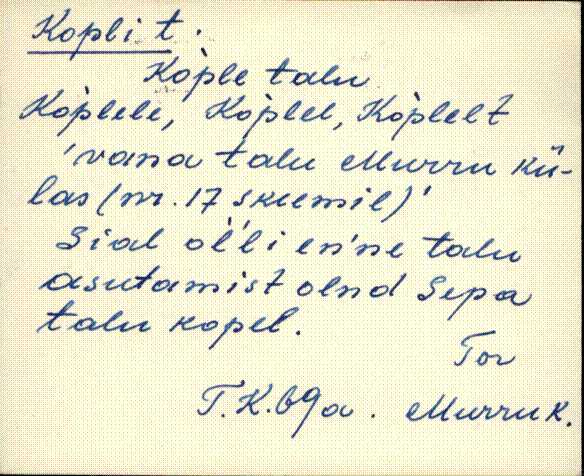 Kopli t.
Kòple talu
Kòplele, Kòplel, Kòplelt
'vana talu Murru kü-
las (nr. 17 skeemil)'
Sial ol'li en'ne talu
asutamist olnd Sepa
talu kopel.
Tor
T.K. 69a. Murru k.